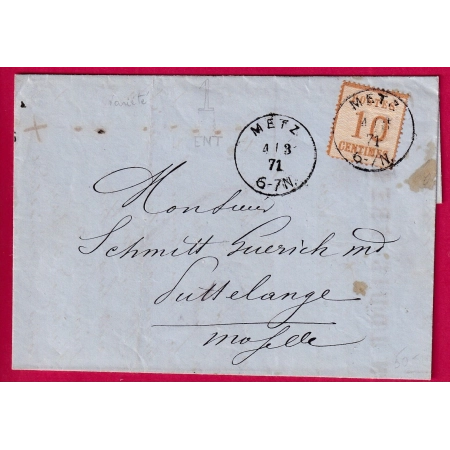 METZ
4 / 3
71
6-7N.
METZ
71
6-7N.
10
CENTIMES
Monsieur
Schmitt Guerich md
Puttelange
Moselle